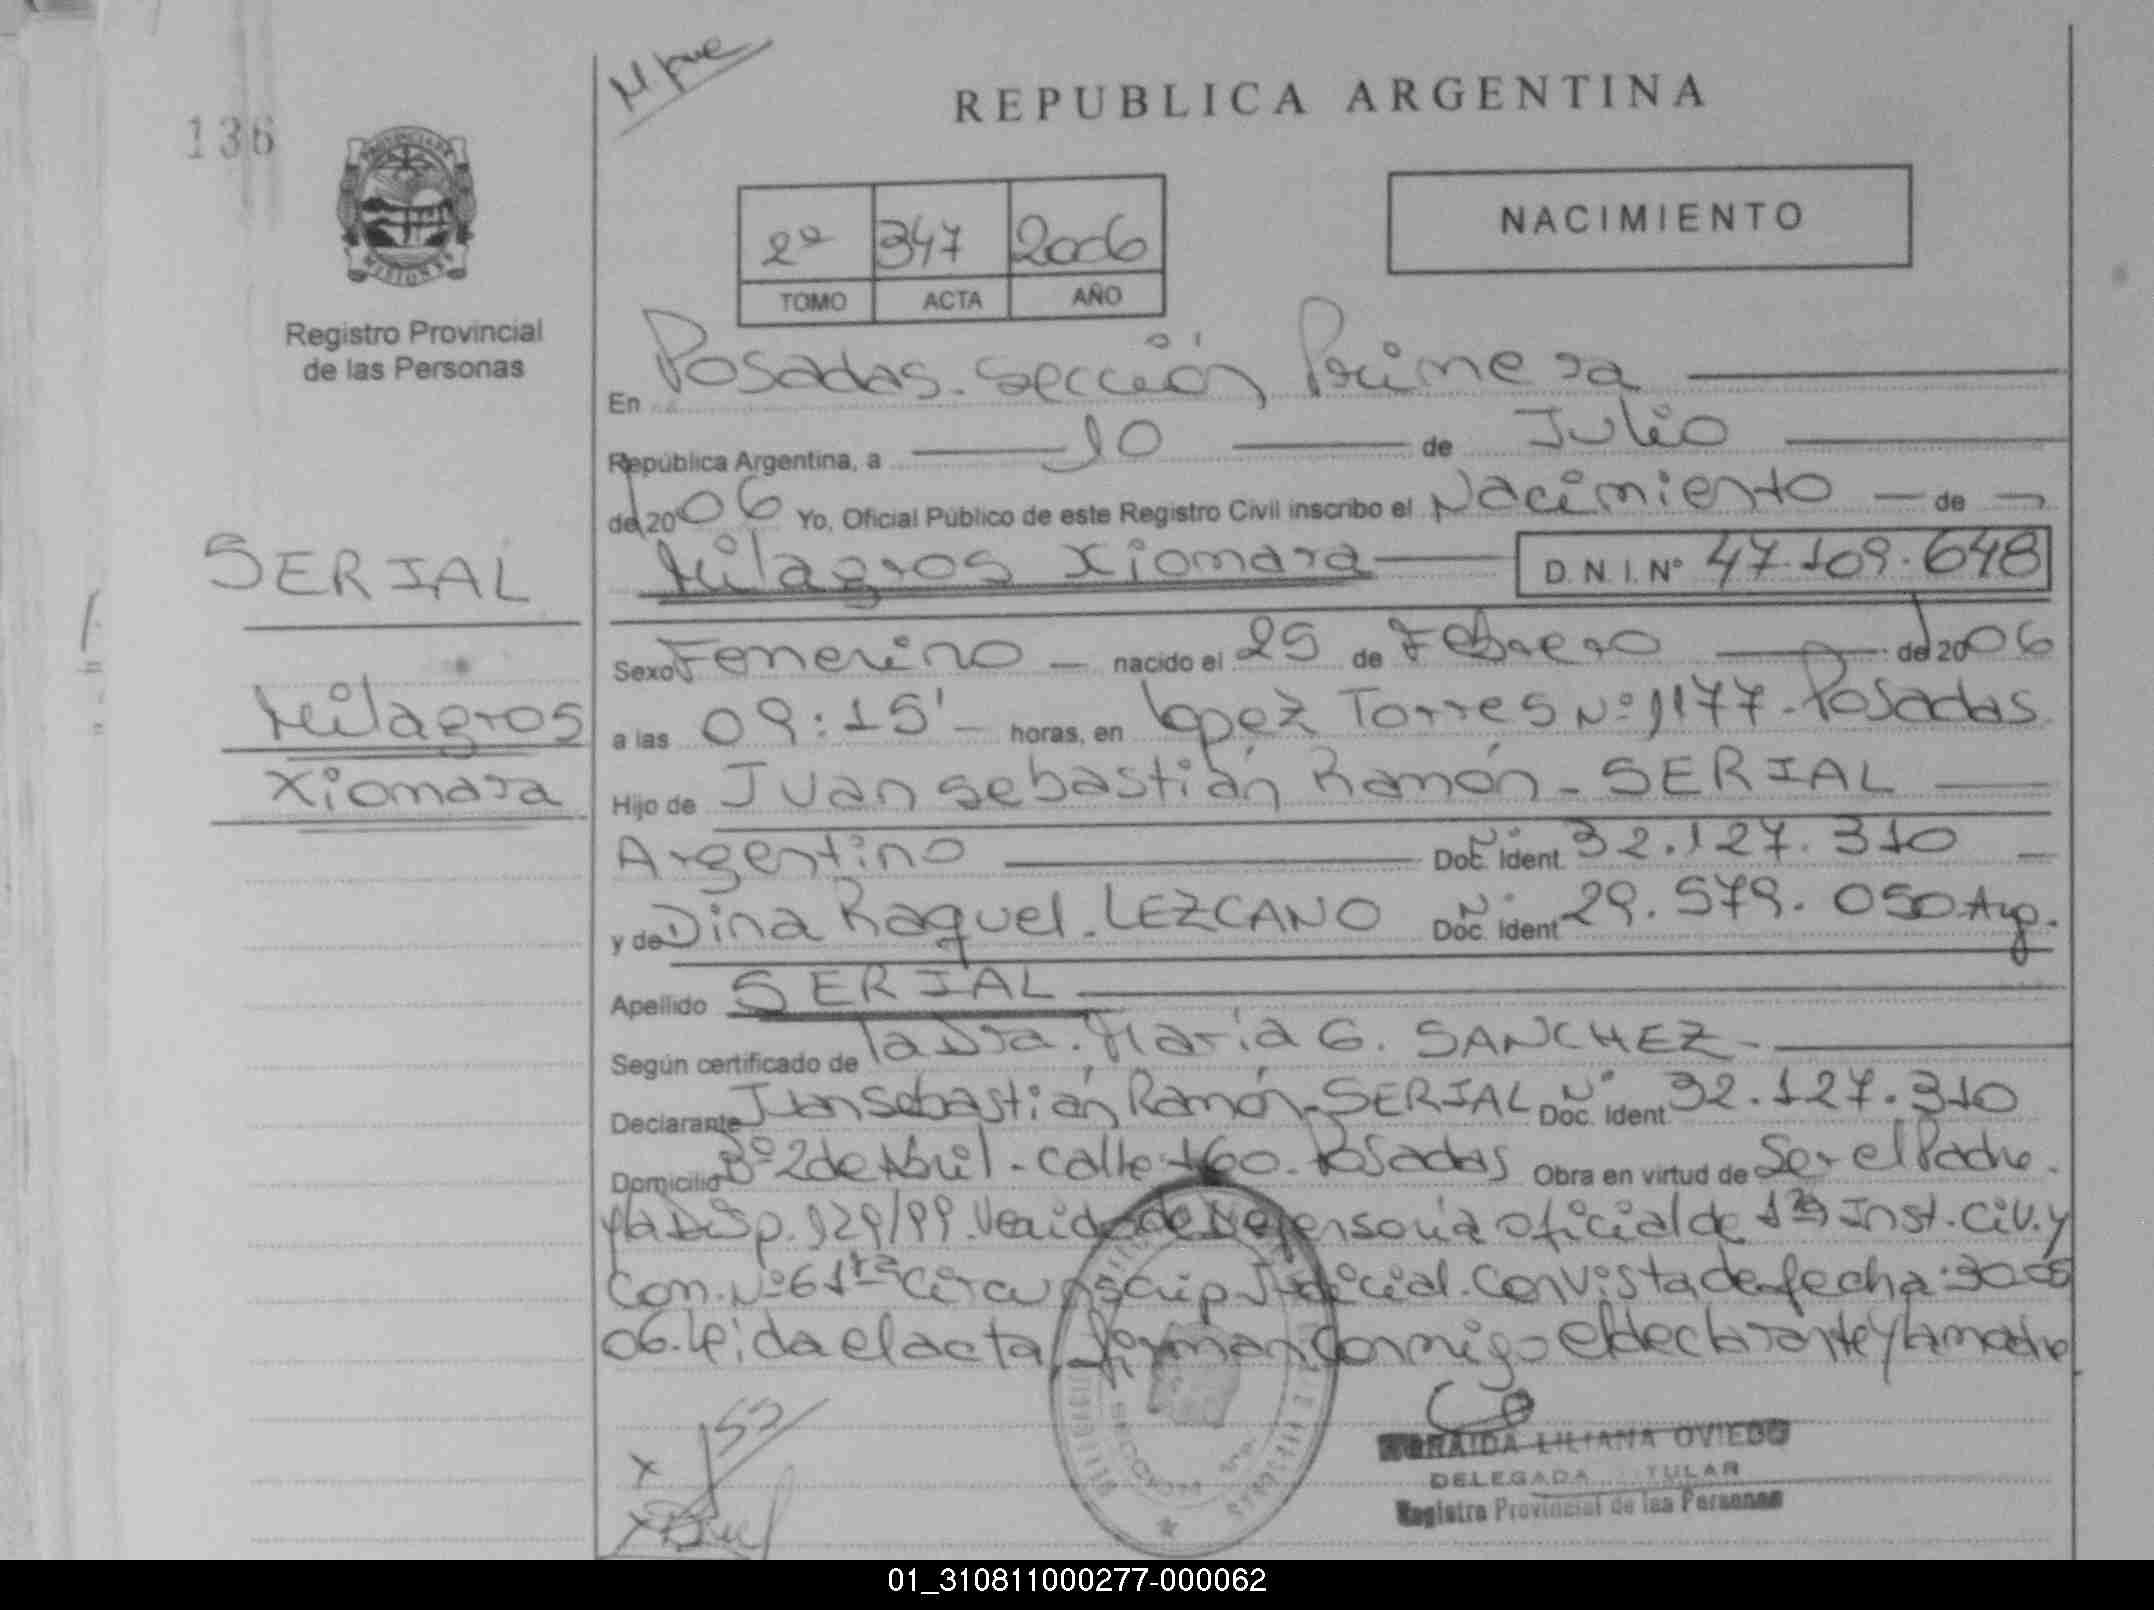 136
REPUBLICA ARGENTINA
NACIMIENTO
2º 347 2006
TOMO ACTA AÑO
Registro Provincial
de las Personas
En Posadas. Sección Primera
República Argentina, a 10 de Julio
del 2006 Yo, Oficial Público de este Registro Civil inscribo el Nacimiento de
Milagros Xiomara D.N.I.Nº 47.109.648
SERIAL
Milagros
Xiomara
Sexo Femenino nacido el 25 de Febrero del 2006
a las 09:15' horas, en Lopez Torres Nº 1177-Posadas
Hijo de Juan Sebastián Ramón - SERIAL
Argentino Doc. Ident. Nº 32.127.310
y de Dina Raquel. LEZCANO Doc. Ident Nº 29.579.050 Arg.
Apellido SERIAL
Según certificado de la Dra. María G. SANCHEZ
Declarante Juan Sebastián Ramón-SERIAL Doc. Ident Nº 32.127.310
Domicilio Bº 2 de Abril - calle 160. Posadas Obra en virtud de Ser el Padre.
y la Disp. 129/99. Venido de Defensoría oficial de 1ra Inst. Civ. y
Com. Nº 6 1ra Circunscrip. Judicial. Con vista de fecha: 30-05
06. Leída el acta, firman conmigo el declarante y la madre
LILIANA OVIEDO
DELEGADA TITULAR
Registro Provincial de las Personas
01_310811000277-000062